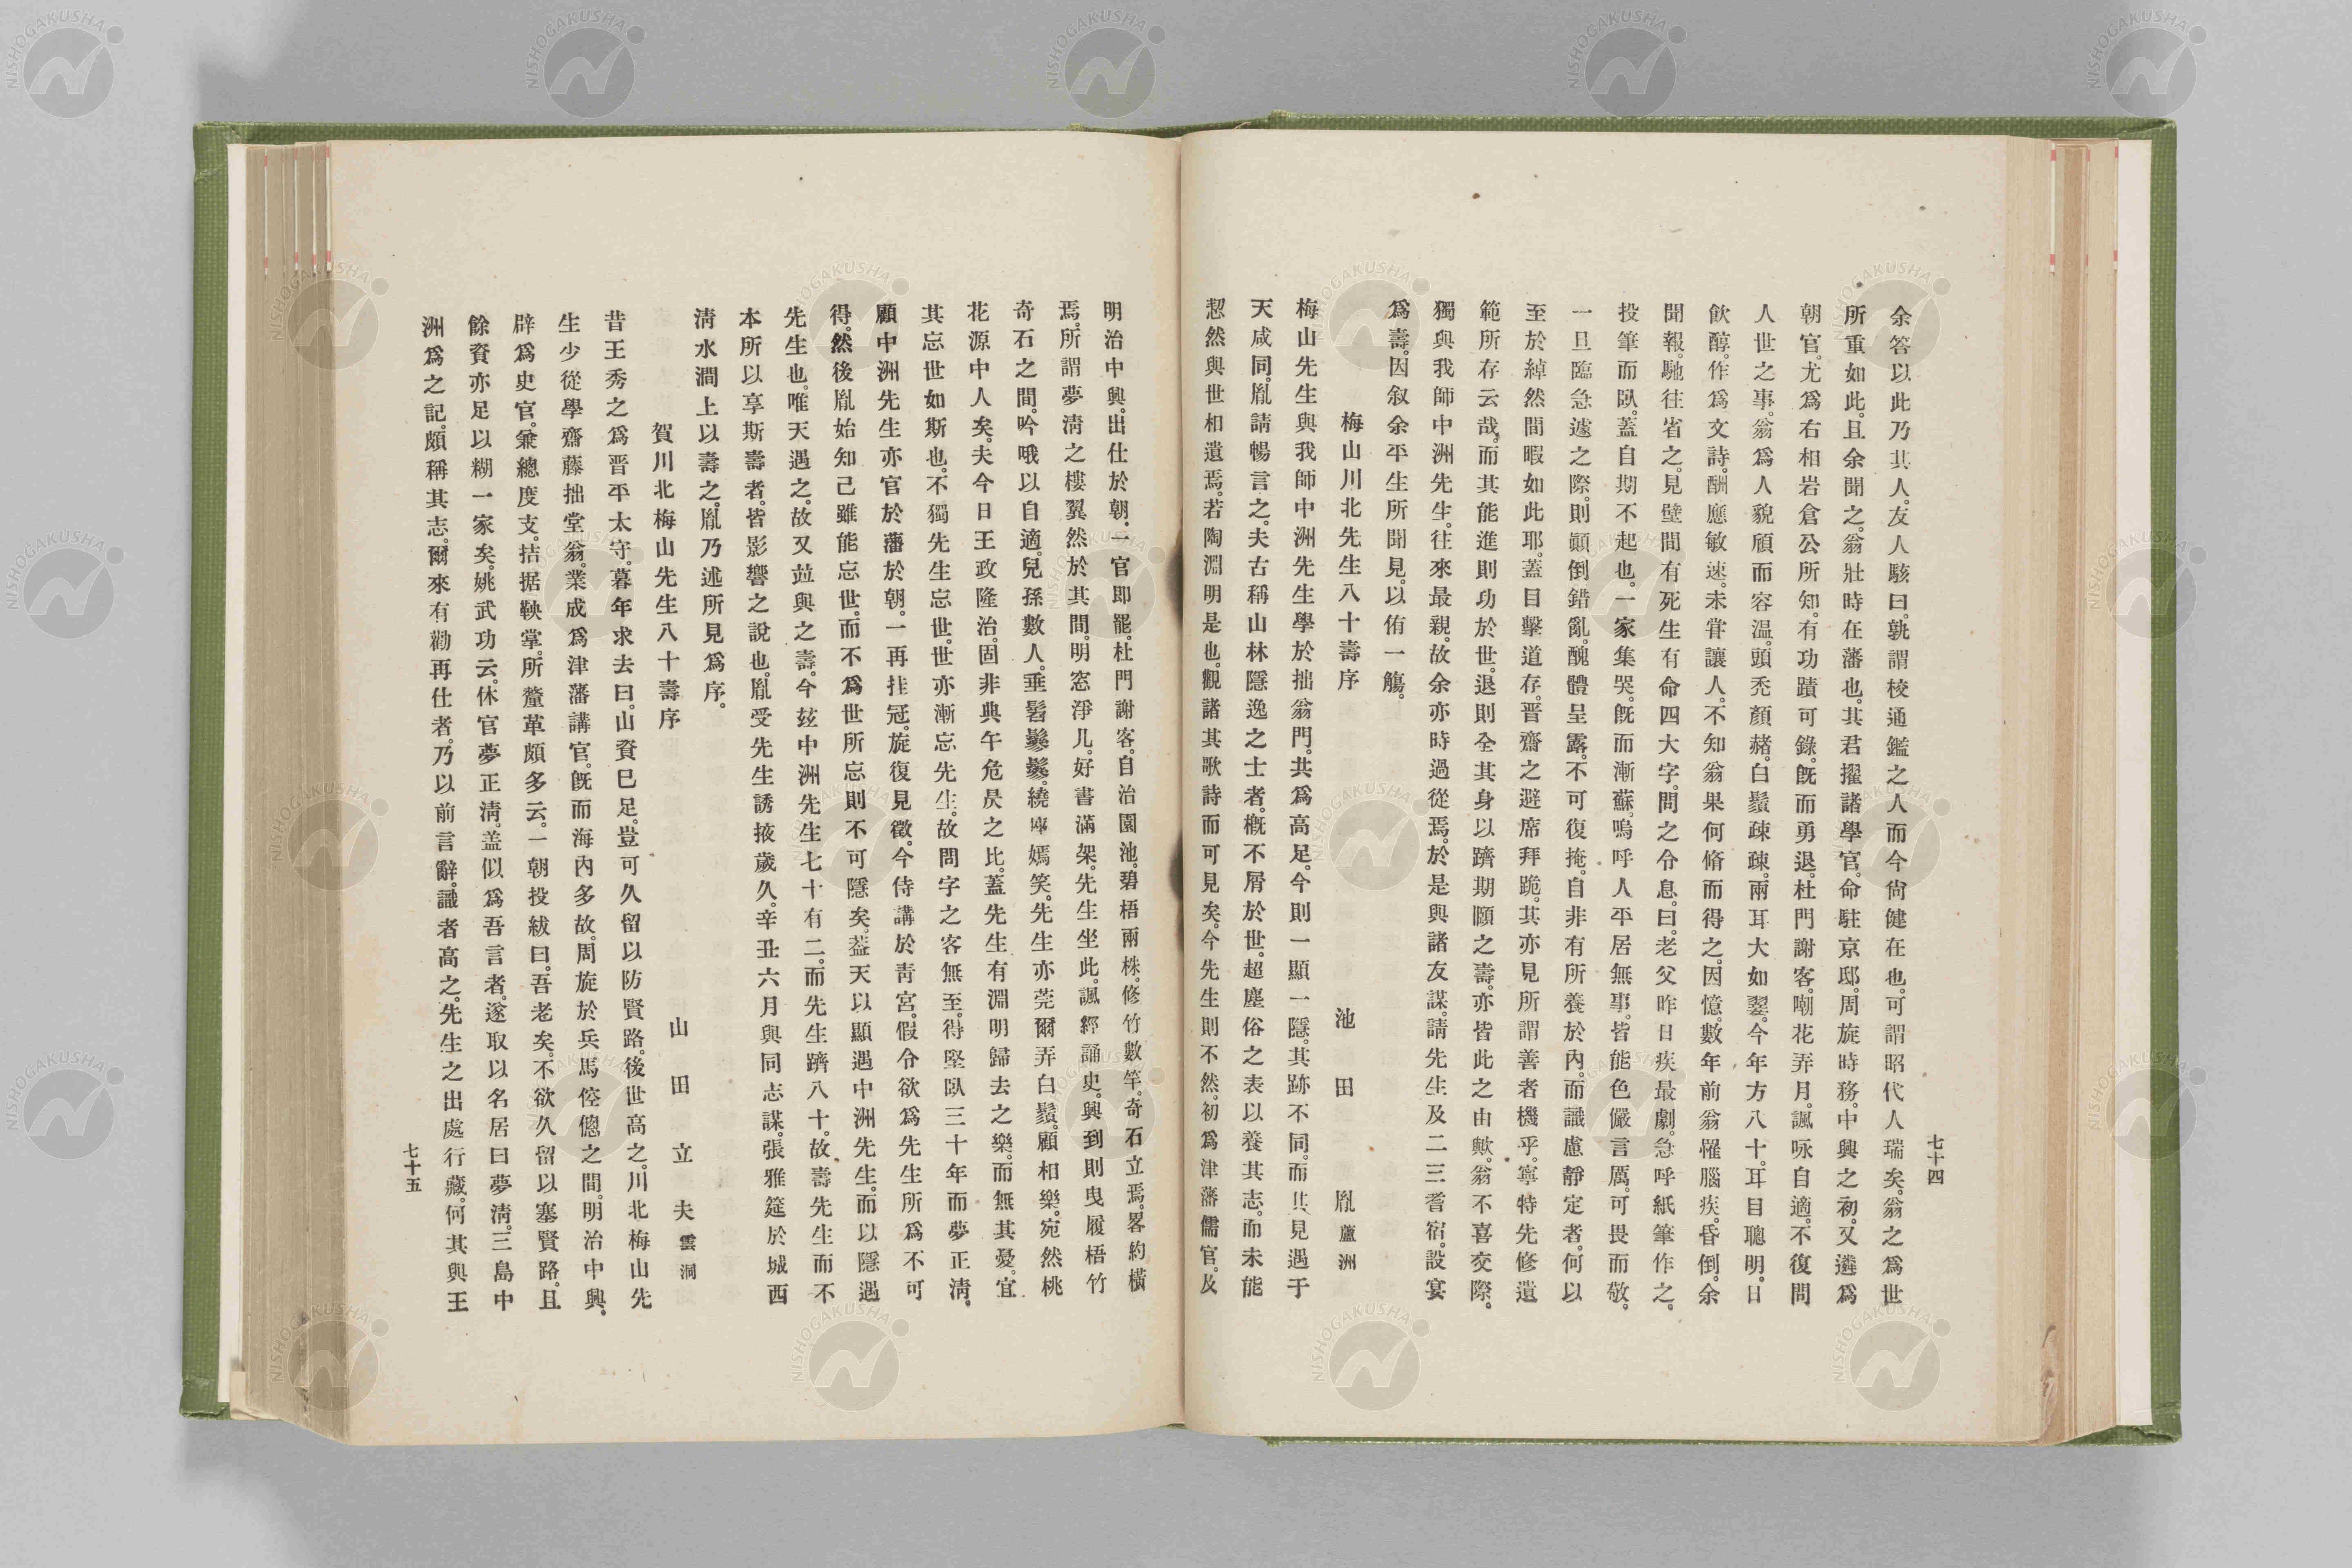 七十四
余答以此乃其人。友人駭曰。孰謂校通鑑之人而今尙健在也。可謂昭代人瑞矣。翁之爲世
所重如此。且余聞之。翁壯時在藩也。其君擢諸學官。命駐京邸。周旋時務。中興之初。又遴爲
朝官。尤爲右相岩倉公所知。有功蹟可錄。旣而勇退。杜門謝客。嘲花弄月。諷咏自適。不復問
人世之事。翁爲人貌頎而容温。頭禿顏赭。白鬚疎疎。兩耳大如翣。今年方八十。耳目聰明。日
飮醇。作爲文詩。酬應敏速。未甞讓人。不知翁果何脩而得之。因憶。數年前翁罹腦疾。昏倒。余
聞報。馳往省之。見壁間有死生有命四大字。問之令息。曰。老父昨日疾最劇。急呼紙筆作之。
投筆而臥。蓋自期不起也。一家集哭。旣而漸蘇。嗚呼人平居無事。皆能色儼言厲。可畏而敬。
一旦臨急遽之際。則顚倒錯亂。醜體呈露。不可復掩。自非有所養於內。而識慮靜定者。何以
至於綽然間暇如此耶。蓋目擊道存。晋齋之避席拜跪。其亦見所謂善者機乎。寧特先修遺
範所存云哉。而其能進則功於世。退則全其身以躋期頤之壽。亦皆此之由歟。翁不喜交際。
獨與我師中洲先生。往來最親。故余亦時過從焉。於是與諸友謀。請先生及二三耆宿。設宴
爲壽。因叙余平生所聞見。以侑一觴。
梅山川北先生八十壽序
池田 胤 蘆洲
梅山先生與我師中洲先生學於拙翁門。共爲高足。今則一顯一隱。其跡不同。而其見遇于
天咸同。胤請暢言之。夫古稱山林隱逸之士者。槪不屑於世。超塵俗之表以養其志。而未能
恝然與世相遺焉。若陶淵明是也。觀諸其歌詩而可見矣。今先生則不然。初爲津藩儒官。及
明治中興。出仕於朝。一官即罷。杜門謝客。自治園池。碧梧兩株。修竹數竿。奇石立焉。畧約橫
焉。所謂夢淸之樓翼然於其間。明窓淨几。好書滿架。先生坐此。諷經誦史。興到則曳履梧竹
奇石之間。吟哦以自適。兒孫數人。垂髫鬖鬖。繞牀嫣笑。先生亦莞爾弄白鬚。顧相樂。宛然桃
花源中人矣。夫今日王政隆治。固非典午危昃之比。蓋先生有淵明歸去之樂。而無其憂。宜
其忘世如斯也。不獨先生忘世。世亦漸忘先生。故問字之客無至。得堅臥三十年而夢正淸。
顧中洲先生亦官於藩於朝。一再挂冠。旋復見徵。今侍講於靑宮。假令欲爲先生所爲不可
得。然後胤始知己雖能忘世。而不爲世所忘則不可隱矣。葢天以顯遇中洲先生。而以隱遇
先生也。唯天遇之。故又竝與之壽。今玆中洲先生七十有二。而先生躋八十。故壽先生而不
本所以享斯壽者。皆影響之說也。胤受先生誘掖歲久。辛丑六月與同志謀。張雅筵於城西
淸水澗上以壽之。胤乃述所見爲序。
賀川北梅山先生八十壽序
山田立夫 雲洞
昔王秀之爲晋平太守。暮年求去曰。山資已足。豈可久留以防賢路。後世高之。川北梅山先
生少從學齋藤拙堂翁。業成爲津藩講官。旣而海內多故。周旋於兵馬倥傯之間。明治中興。
辟爲史官。兼總度支。拮据鞅掌。所釐革頗多云。一朝投紱曰。吾老矣。不欲久留以塞賢路。且
餘資亦足以糊一家矣。姚武功云。休官夢正淸。盖似爲吾言者。遂取以名居曰夢淸。三島中
洲爲之記。頗稱其志。爾來有勸再仕者。乃以前言辭。識者高之。先生之出處行藏。何其與王
七十五